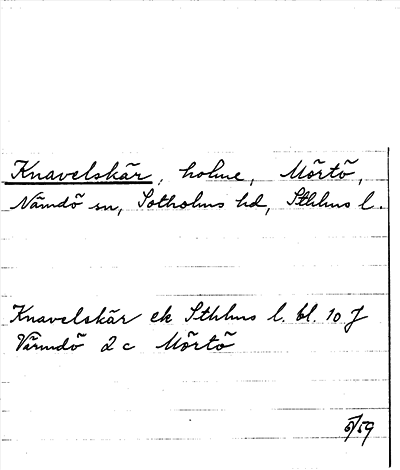 Knavelskär, holme, Mörtö,
Nämdö sn, Sotholms hd, Sthlms l.
Knavelskär ek Sthlms l. bl. 10 J
Värmdö 2 c Mörtö
5/59